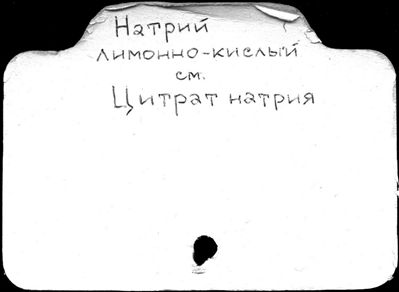 Натрий
лимонно-кислый
см.
Цитрат натрия